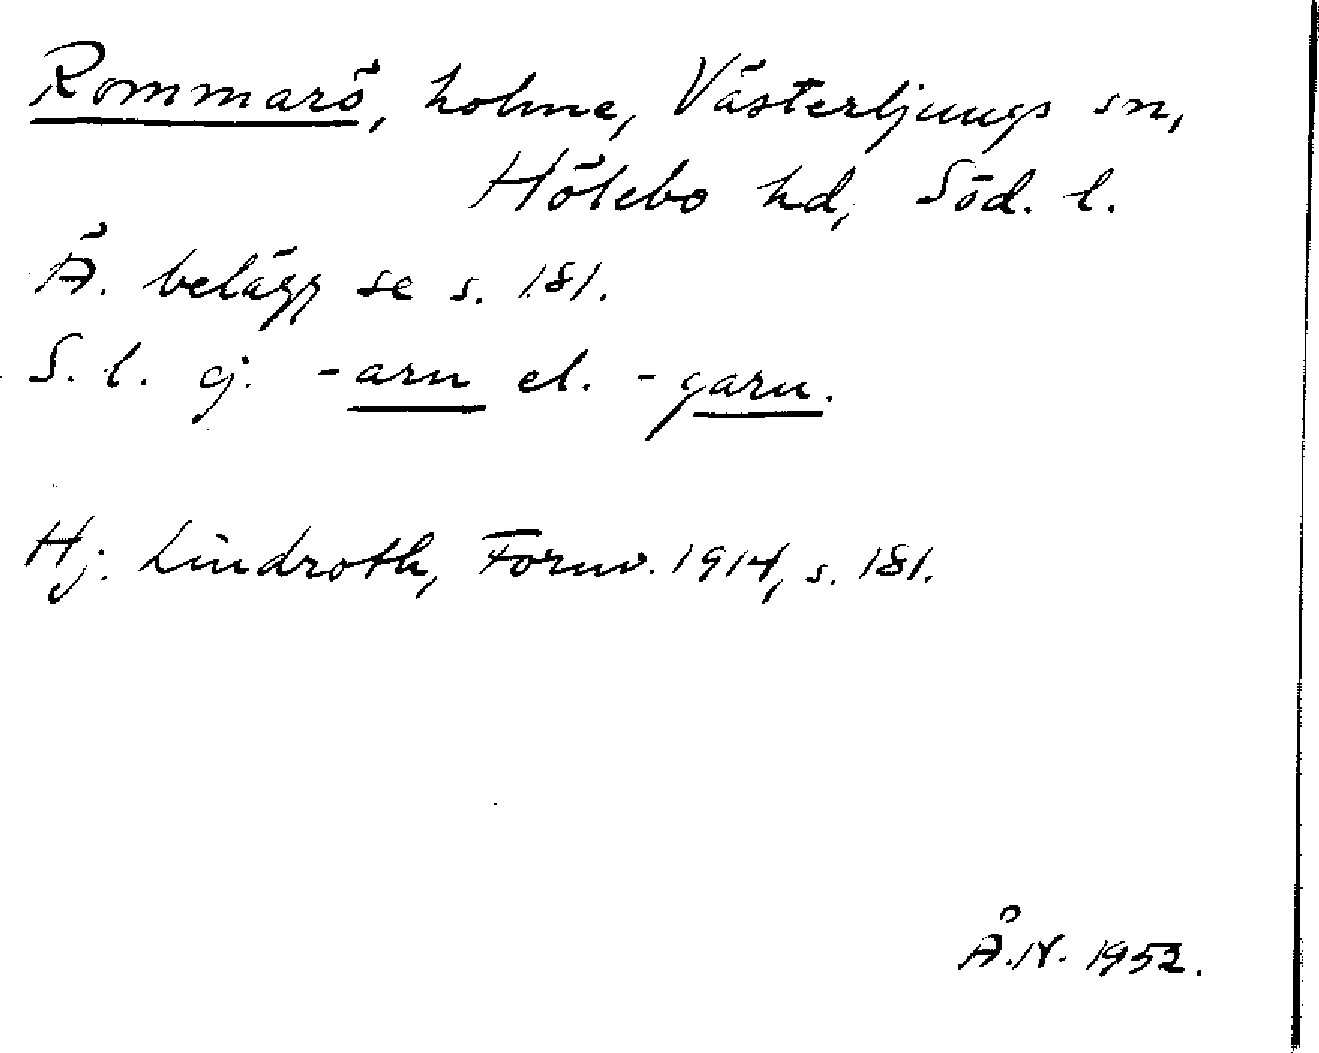 Rommarö, holme, Västerljungs sn,
Hölebo hd, Söd. l.
Ä. belägg se s. 181.
S. l. ej. -arn el. -garn.
Hj. Lindroth, Fornv. 1914, s. 181.
Å.N. 1952.